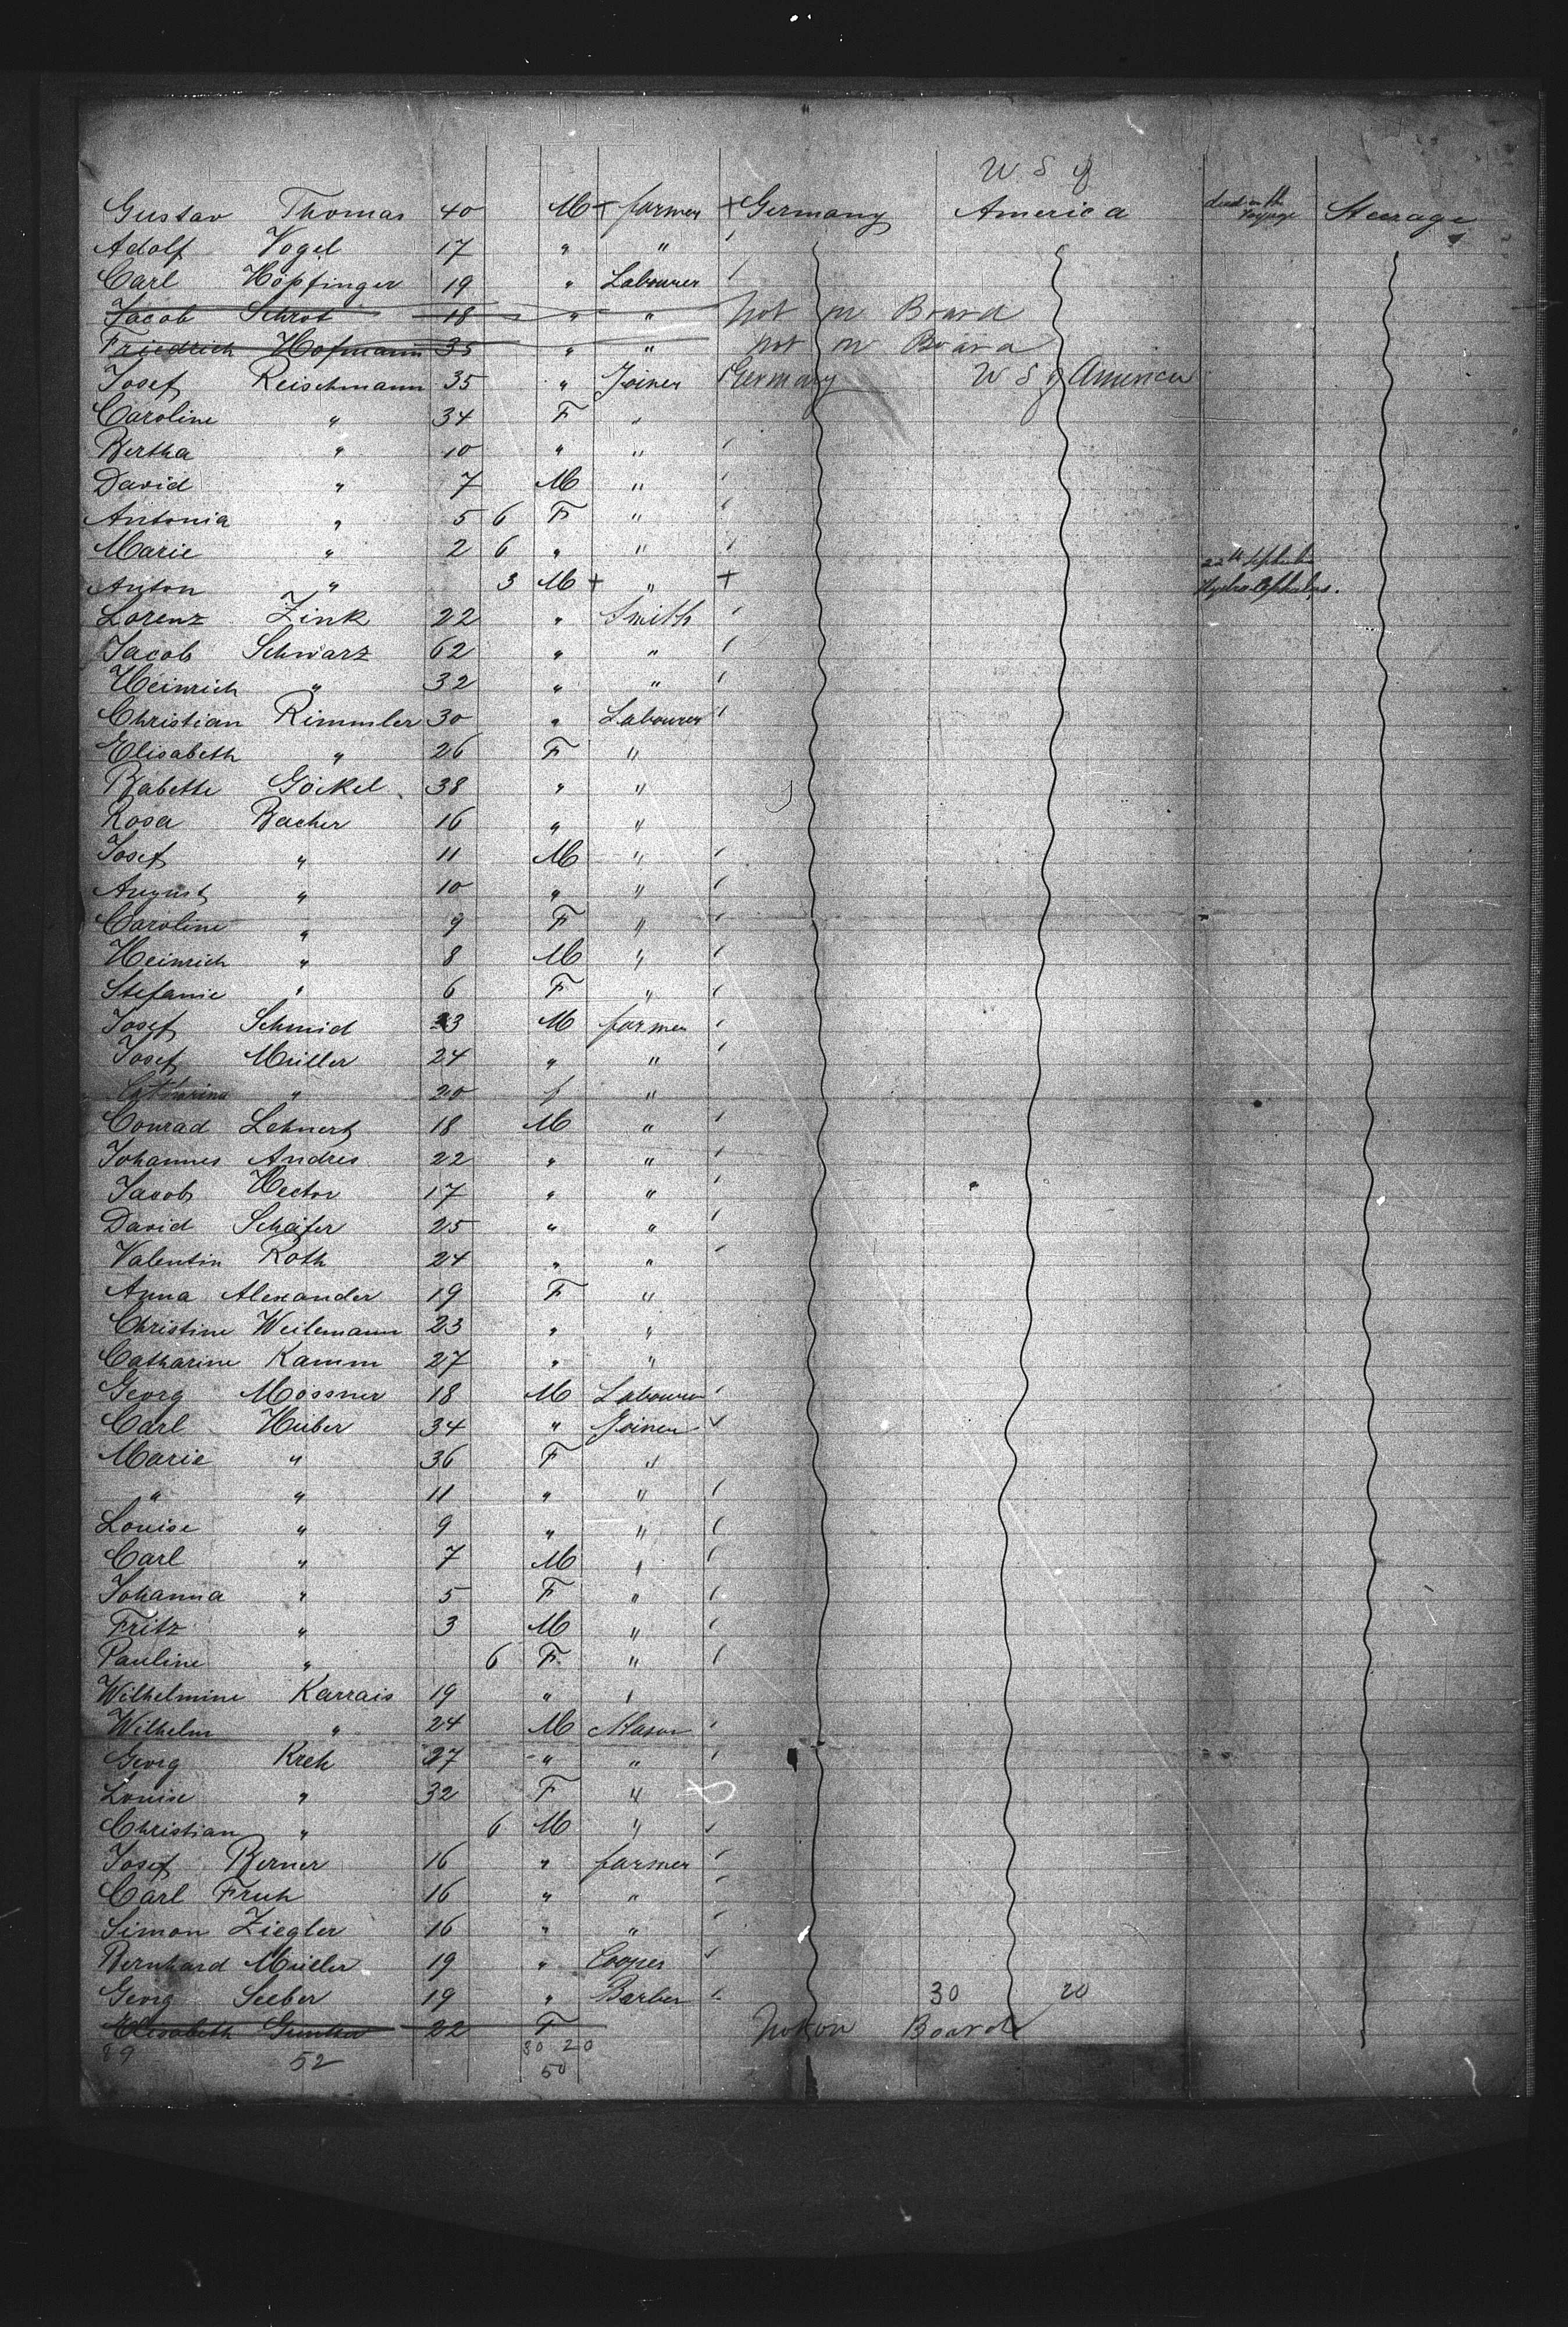 U S of
Gustav Thomas 40 M + farmer + Germany America died on the voyage Steerage
Adolf Vogel 17 " "
Carl Höpfinger 19 " Labourer
Jacob Schrot 18 " " not on Board
Friedrich Hofmann 35 " " not on Board
Josef Reischmann 35 " Joiner Germany U S of America
Caroline " 34 F "
Bertha " 10 " "
David " 7 M "
Antonia " 5 6 F "
Marie " 2 6 " " 22th
Anton " 3 M + " + Hydrocephalus.
Lorenz Zink 22 " Smith
Jacob Schwarz 62 " "
Heinrich " 32 " "
Christian Rimmler 30 " Labourer
Elisabeth " 26 F "
Babette Göckel 38 " "
Rosa Bacher 16 " "
Josef " 11 M "
August " 10 " "
Caroline " 9 F "
Heinrich " 8 M "
Stefanie " 6 F "
Josef Schmid 23 M farmer
Josef Müller 24 " "
Catharina " 20 f "
Conrad Lehnert 18 M "
Johannes Andres 22 " "
Jacob Hector 17 " "
David Schäfer 25 " "
Valentin Roth 24 " "
Anna Alexander 19 F "
Christine Weilemann 23 " "
Catharine Kamm 27 " "
Georg Mössner 18 M Labourer
Carl Huber 34 " Joiner
Marie " 36 F "
" " 11 " "
Louise " 9 " "
Carl " 7 M "
Johanna " 5 F "
Fritz " 3 M "
Pauline " 6 F "
Wilhelmine Karrais 19 " "
Wilhelm " 24 M Mason
Georg Kreh 27 " "
Louise " 32 F "
Christian " 6 M "
Josef Berner 16 " farmer
Carl Fruh 16 " "
Simon Ziegler 16 " "
Bernhard Müller 19 " Cooper
Georg Seeber 19 " Barber 30 20
Elisabeth Gunther 22 F Not on Board
89 52 30 20
50